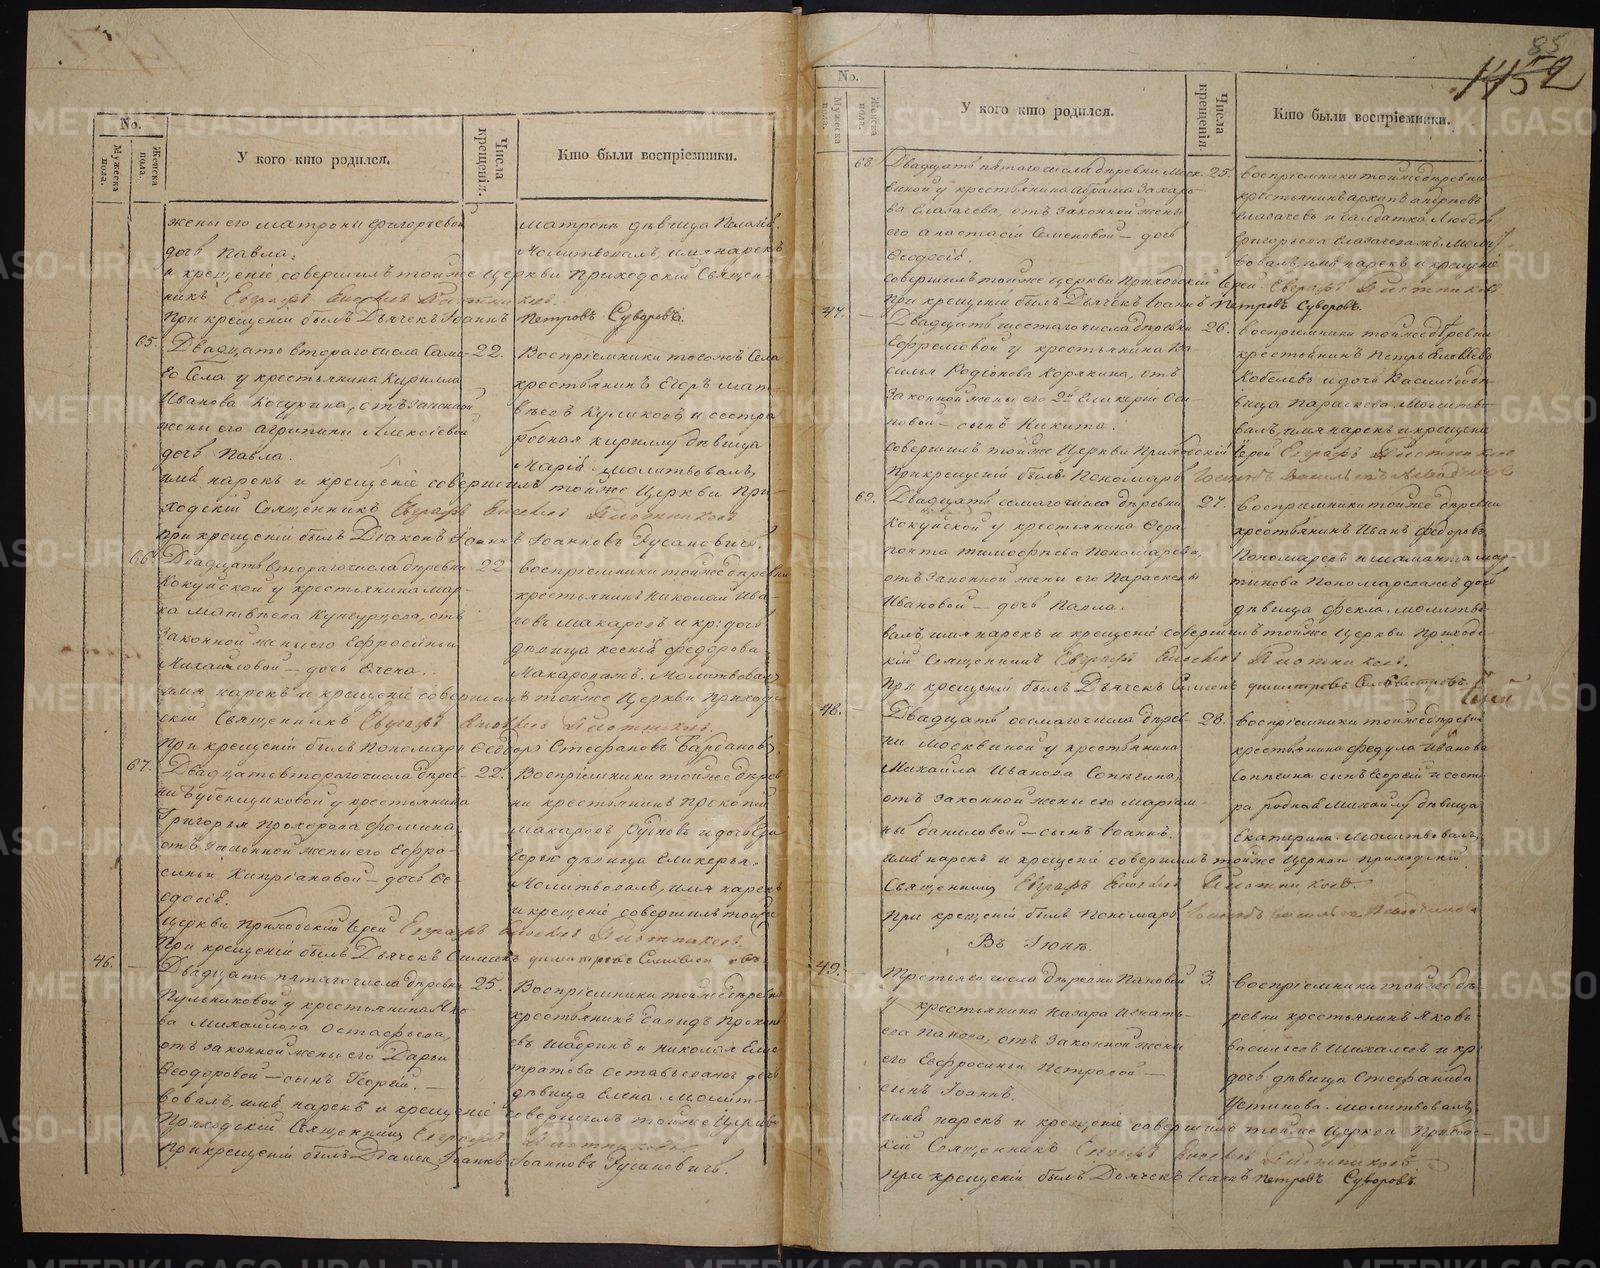 85
1452
No.
Мужеска пола.
Женска пола.
У кого кто родился.
Числа крещенія.
Кто были воспріемники.
жены его Матроны Григорьевой
дочь Павла.
и крещеніе совершилъ тойже Церкви Приходскій Священ-
никъ Евграфъ Плотниковъ.
При крещеніи былъ Дьячекъ Іоаннъ Петровъ Суворовъ.
Матрона дѣвица
Молитвовалъ, имя нарекъ
65.
Двадцать втораго числа
Села у крестьянина Кирилла
Иванова Кочурина, отъ законной
жены его Агрипины Алексіевой
дочь Павла.
22.
Воспріемники тогожъ Села
крестьянинъ Егоръ Мат-
вѣевъ Куликовъ и сестра
родная Кириллу дѣвица
Марія. Молитвовалъ,
имя нарекъ и крещеніе совершилъ тойже Церкви При-
ходскій Священникъ Евграфъ Плотниковъ
При крещеніи былъ Діаконъ Іоаннъ Іоанновъ Русановичь.
66.
Двадцать втораго числа деревни
Кокуйской у крестьянина Мар-
ка Матвѣева Кунгурцова, отъ
законной жены его Ефросиньи
Михайловой — дочь Елена.
22
Воспріемники тойже деревни
крестьянинъ Николай Ива-
новъ Макаровъ и кр: дочь
дѣвица Ксенія Федорова
Макаровыхъ. Молитвовалъ
имя нарекъ и крещеніе совершилъ тойже Церкви Приход-
скій Священникъ Евграфъ Плотниковъ.
При крещеніи былъ Пономарь Ѳеодоръ Стефановъ Барбановъ.
67.
Двадцать втораго числа дерев-
ни у крестьянина
Григорья Прохорова Фомина,
отъ законной жены его Ефро-
синьи Кипріановой — дочь Ѳе-
одосія.
22.
Воспріемники тойже дерев-
ни крестьянинъ Прокопій
Макаровъ и дочь
дѣвица Гликерья.
Молитвовалъ, имя нарекъ
и крещеніе совершилъ тойже
Церкви Приходскій Іерей Евграфъ Плотниковъ.
При крещеніи былъ Дьячекъ Симеонъ Димитровъ
46.
Двадцать пятаго числа деревни
Пульниковой у крестьянина Яко-
ва Михайлова Остафьева,
отъ законной жены его Дарьи
Ѳеодоровой — сынъ Георгій. —
25.
Воспріемники тойже деревни
крестьянинъ Давидъ
Шабринъ и Николая
дочь
дѣвица Елена. Молит-
вовалъ, имя нарекъ и крещеніе совершилъ тойже Церкви
Приходскій Священникъ Евграфъ Плотниковъ
При крещеніи былъ Діаконъ Іоаннъ Іоанновъ Русановичь.
No.
Мужеска пола.
Женска пола.
У кого кто родился.
Числа крещенія.
Кто были воспріемники.
68.
Двадцать пятаго числа деревни Моск-
виной у крестьянина Абрама Захаро-
ва Глазачева, отъ законной жены
его Анастасіи Семеновой — дочь
Ѳеодосія.
25.
воспріемники тойже деревни
крестьянинъ Архипъ
Глазачевъ и солдатка Любовь
Григорьева Глазачевыхъ. Молит-
вовалъ, имя нарекъ и крещеніе
совершилъ тойже Церкви Приходскій Іерей Евграфъ Плотниковъ
При крещеніи былъ Дьячекъ Іоаннъ Петровъ Суворовъ.
47.
Двадцать шестаго числа деревни
Ефремовой у крестьянина Ва-
силья Родіонова Корякина, отъ
законной жены его 2й Гликеріи Оси-
повой — сынъ Никита.
26.
воспріемники тойже деревни
крестьянинъ Петръ
Кобелевъ и дочь Василія дѣ-
вица Параскева. Молитво-
валъ, имя нарекъ и крещеніе
совершилъ тойже Церкви Приходскій Іерей Евграфъ Плотниковъ
При крещеніи былъ Пономарь
69.
Двадцать седмаго числа деревни
Кокуйской у крестьянина Ѳера-
понта Тимофѣева Пономарева,
отъ законной жены его Параскевы
Ивановой — дочь Павла.
27.
воспріемники тойже деревни
крестьянинъ Иванъ Федоровъ
Пономаревъ и Мар-
тинова Пономаревыхъ дочь
дѣвица Фекла. Молитво-
валъ, имя нарекъ и крещеніе совершилъ тойже Церкви Приход-
скій Священникъ Евграфъ Плотниковъ.
При крещеніи былъ Дьячекъ Симеонъ Димитровъ Сильвестровъ.
48.
Двадцать осмаго числа дерев-
ни Москвиной у крестьянина
Михайла Иванова Соптина,
отъ законной жены его Маріам-
ны Даниловой — сынъ Іоаннъ.
28.
воспріемники тойже деревни
крестьянина Федула Иванова
Соптина сынъ Георгій и сест-
ра родная Михайлу дѣвица
Екатерина. Молитвовалъ,
имя нарекъ и крещеніе совершилъ тойже Церкви Приходскій
Священникъ Евграфъ Плотниковъ.
При крещеніи былъ Пономарь
Въ Іюнѣ.
49.
Третьяго числа деревни Пановой
у крестьянина Назара Игнать-
ева Панова, отъ законной жены
его Евфросиньи Петровой —
сынъ Іоаннъ.
3.
воспріемники тойже де-
ревни крестьянинъ Яковъ
Васильевъ Шихалевъ и кр:
дочь дѣвица Стефанида
Устинова. Молитвовалъ,
имя нарекъ и крещеніе совершилъ тойже Церкви Приход-
скій Священникъ Евграфъ Плотниковъ
При крещеніи былъ Дьячекъ Іоаннъ Петровъ Суворовъ.
METRIKI.GASO-URAL.RU